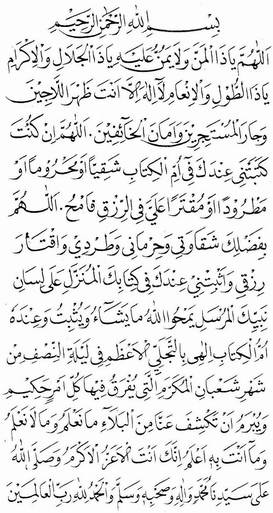 بِسْمِ اللهِ الرَّحْمٰنِ الرَّحِيْمِ
اَللّٰهُمَّ يَاذَا الْمَنِّ وَلَا يُمَنُّ عَلَيْهِ يَاذَا الْجَلَالِ وَالْاِكْرَامِ
يَاذَا الطَّوْلِ وَالْاِنْعَامِ لَا اِلٰهَ اِلَّا اَنْتَ ظَهْرَ اللَّاجِيْنَ
وَجَارَ الْمُسْتَجِيْرِيْنَ وَاَمَانَ الْخَائِفِيْنَ. اَللّٰهُمَّ اِنْ كُنْتَ
كَتَبْتَنِيْ عِنْدَكَ فِيْ اُمِّ الْكِتَابِ شَقِيًّا اَوْ مَحْرُوْمًا اَوْ
مَطْرُوْدًا اَوْ مُقْتَرًّا عَلَيَّ فِى الرِّزْقِ فَامْحُ. اَللّٰهُمَّ
بِفَضْلِكَ شَقَاوَتِيْ وَحِرْمَانِيْ وَطَرْدِيْ وَاقْتَارَ
رِزْقِيْ وَاثْبِتْنِيْ عِنْدَكَ فِيْ كِتَابِكَ الْمُنَزَّلِ عَلَى لِسَانِ
نَبِيِّكَ الْمُرْسَلِ يَمْحُوا اللهُ مَايَشَاءُ وَيُثْبِتُ وَعِنْدَهُ
اُمُّ الْكِتَابِ اِلٰهِيْ بِالتَّجَلِّى الْاَعْظَمِ فِيْ لَيْلَةِ النِّصْفِ مِنْ
شَهْرِ شَعْبَانَ الْمُكَرَّمِ الَّتِيْ يُفْرَقُ فِيْهَا كُلُّ اَمْرٍ حَكِيْمٍ
وَيُبْرَمُ اَنْ تَكْشِفَ عَنَّا مِنَ الْبَلَاءِ مَا نَعْلَمُ وَمَا لَا نَعْلَمُ
وَمَا اَنْتَ بِهِ اَعْلَمُ اِنَّكَ اَنْتَ الْاَعَزُّ الْاَكْرَمُ وَصَلَّى اللهُ
عَلَى سَيِّدِنَا مُحَمَّدٍ وَاٰلِهِ وَصَحْبِهِ وَسَلَّمَ وَالْحَمْدُ لِلّٰهِ رَبِّ الْعَالَمِيْنَ